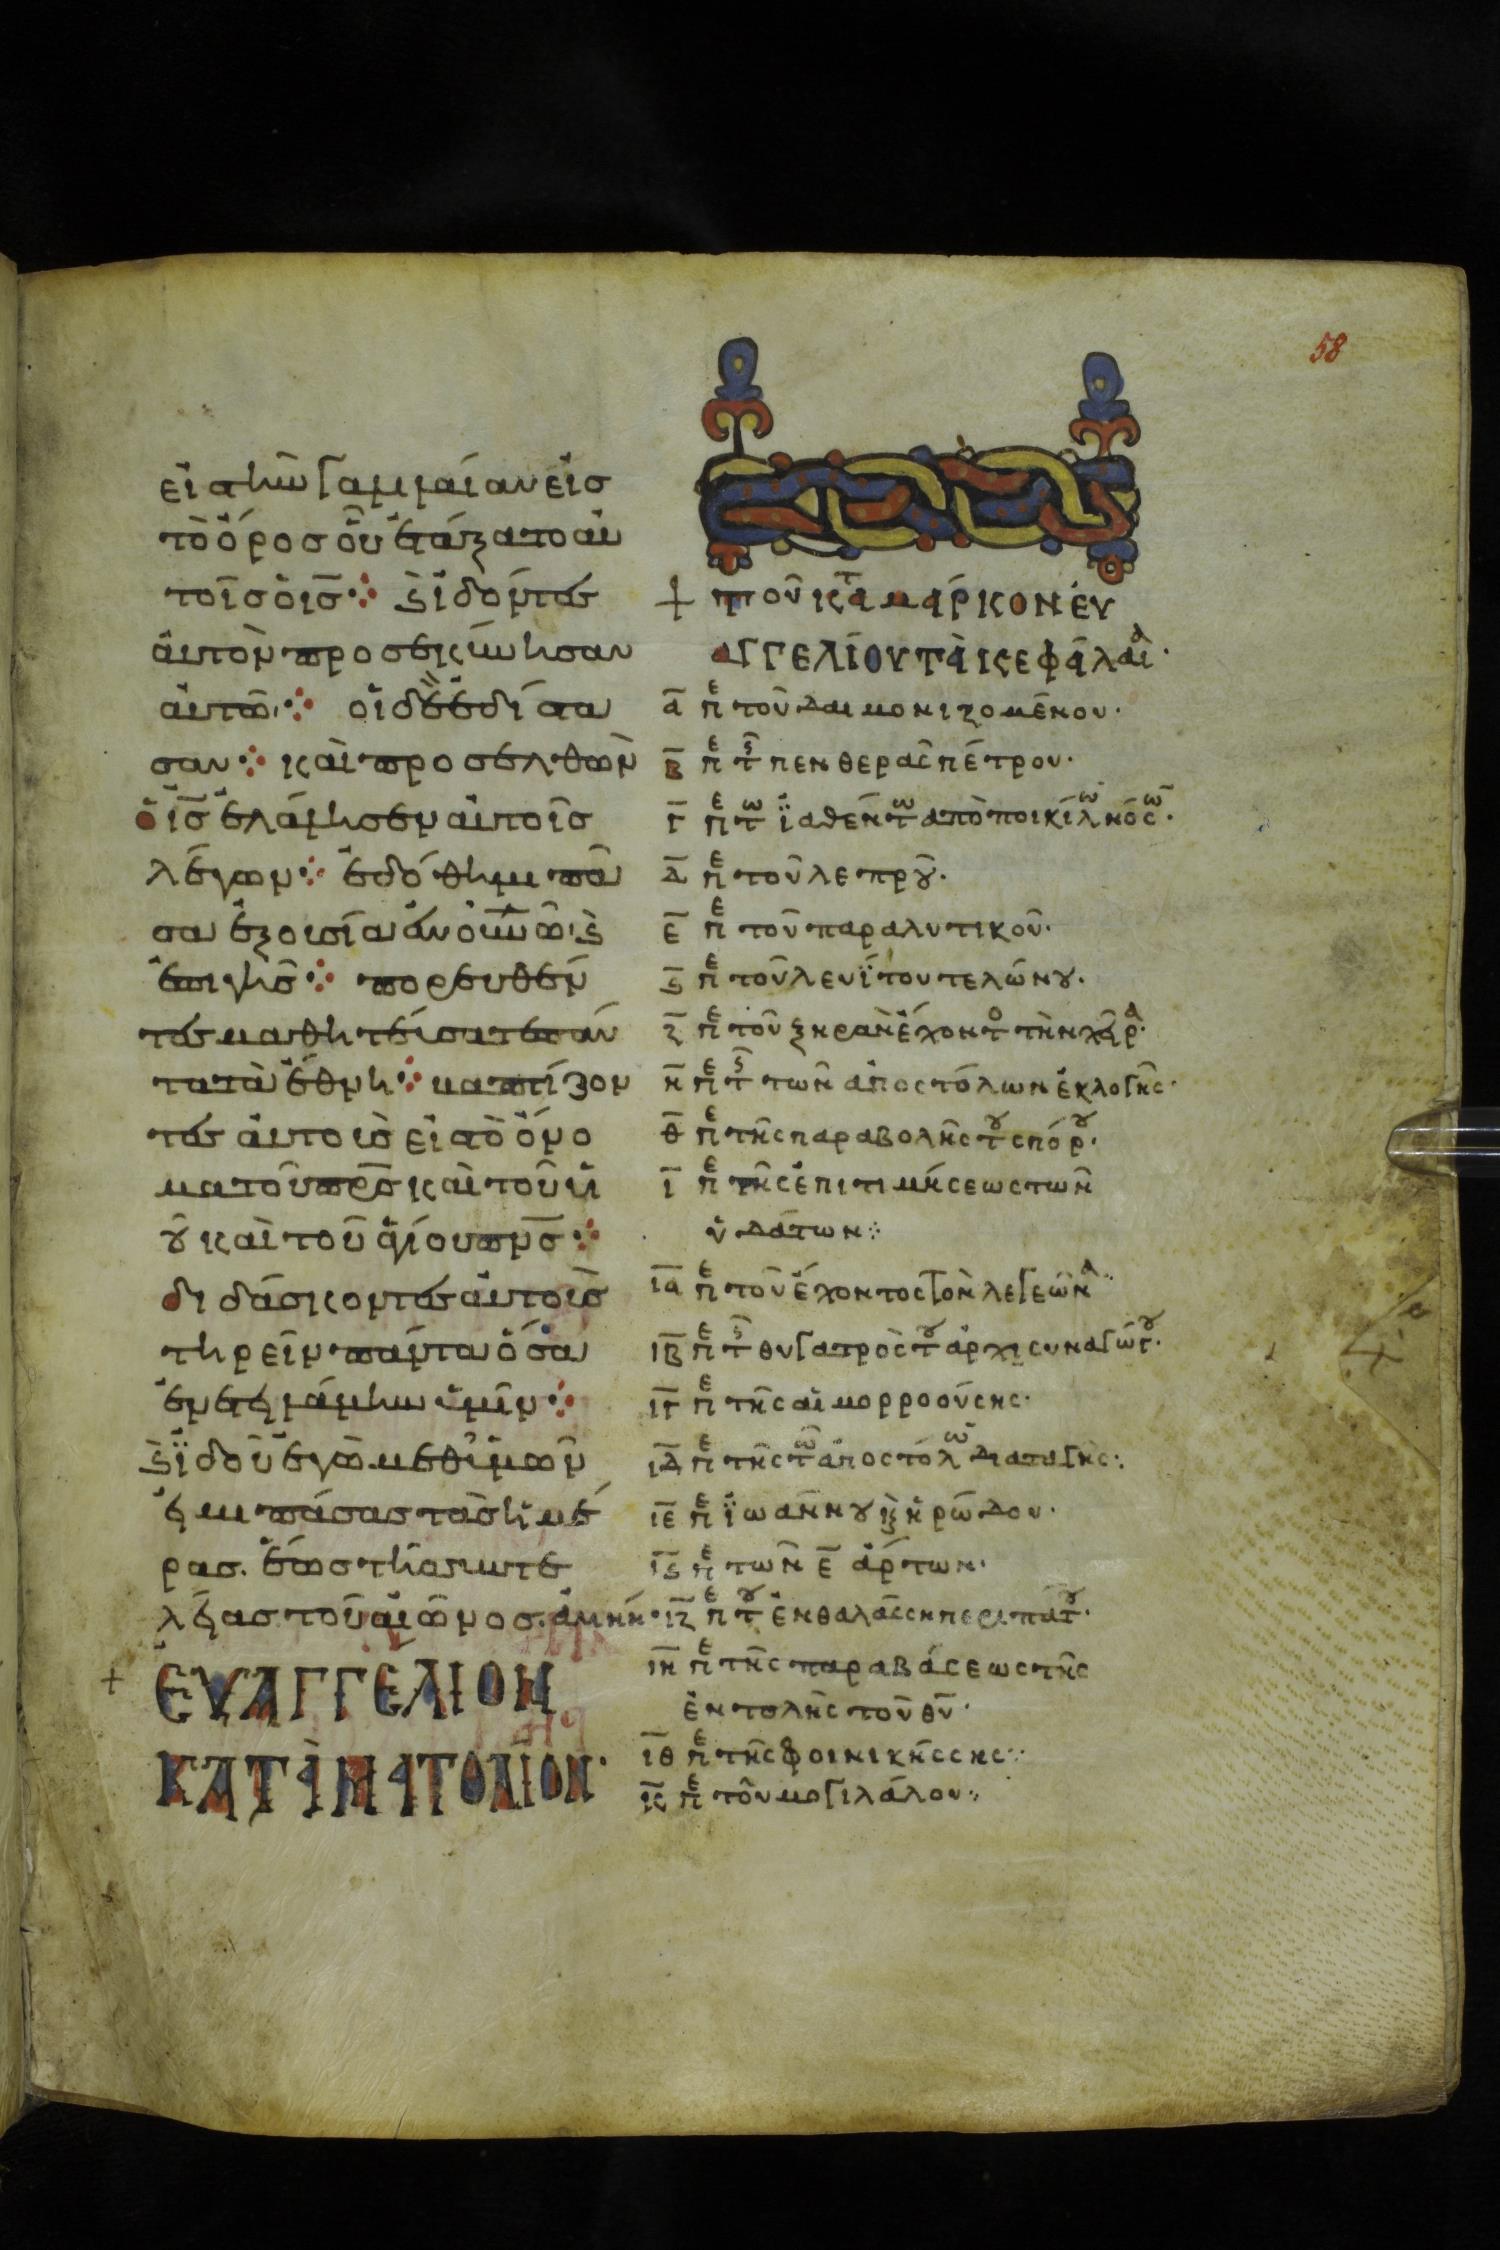 58
εἰς τὴν γαλιλαίαν εἰς
τὸ ὄρος οὗ ἐτάξατο αὐ
τοῖς ὁ ι̅ς̅ ⁘ ϗ ἰδόντες
αὐτὸν προσεκύνησαν
αὐτῶ ⁘ οἱ δὲ ἐδίστα
σαν ⁘ καὶ προσελθὼν
ὁ ι̅ς̅ ἐλάλησεν αὐτοῖς
λέγων ⁘ ἐδόθη μοι πᾶ
σα ἐξουσία ἐν ο̅υ̅ν̅ῶ ϗ
ἐπι γῆς ⁘ πορευθέν
τες μαθητεύσατε πάν
τα τὰ ἔθνη ⁘ βαπτίζον
τες αὐτοὺς εἰς τὸ ὄνο
μα τοῦ π̅ρ̅ς̅ καὶ τοῦ υἱ
οῦ καὶ τοῦ ἁγίου π̅ν̅ς̅ ⁘
διδάσκοντες αὐτοὺς
τηρεῖν πάντα ὅσα
ἐνετειλάμην ὑμῖν ⁘
ϗ ἰδοὺ ἐγὼ μεθ' ὑμῶν
εἰμι πάσας τὰς ἡμέ
ρας. ἕως τῆς συντε
λείας τοῦ αἰῶνος. ἀμήν·
+ ΕΥΑΓΓΈΛΙΟΝ
ΚΑΤᾺ ΜΑΤΘΑῖΟΝ·
+ τοῦ κατ̅ὰ μάρκον εὐ
αγγελίου τὰ κεφάλαια·
α̅ πε τοῦ δαιμονιζομένου·
β̅ πε τς πενθερᾶς πέτρου·
γ̅ πε τω ἰαθέντω ἀπὸ ποικίλω νόσω·
δ̅ πε τοῦ λεπροῦ·
ε̅ πε τοῦ παραλυτικοῦ·
ς̅ πε τοῦ λευΐ τοῦ τελώνου·
ζ̅ πε τοῦ ξηρὰν ἔχοντο τὴν χεῖρα·
η̅ πε τς τῶν ἀποστόλων ἐκλογῆς·
θ̅ πε τῆς παραβολῆς του σπόρου·
ι̅ πε τῆς ἐπιτιμήσεως τῶν
ὑδάτων⁘
ι̅α̅ πε τοῦ ἔχοντος τὸν λεγεῶνα·
ι̅β̅ πε τς θυγατρὸς του ἀρχισυναγώγου·
ι̅γ̅ πε τῆς αἱμορροούσης·
ι̅δ̅ πε τῆς τω ἀποστόλω διαταγῆς·
ι̅ε̅ πε ἰωάννου ϗ ἡρώδου·
ι̅ς̅ πε τῶν ε̅ ἄρτων·
ι̅ζ̅ πε του ἐν θαλάσση περιπάτου·
ι̅η̅ πε τῆς παραβάσεως τῆς
ἐντολῆς τοῦ θ̅υ̅·
ι̅θ̅ πε τῆς φοινικήσσης⁘
κ̅ πε τοῦ μογιλάλου⁘